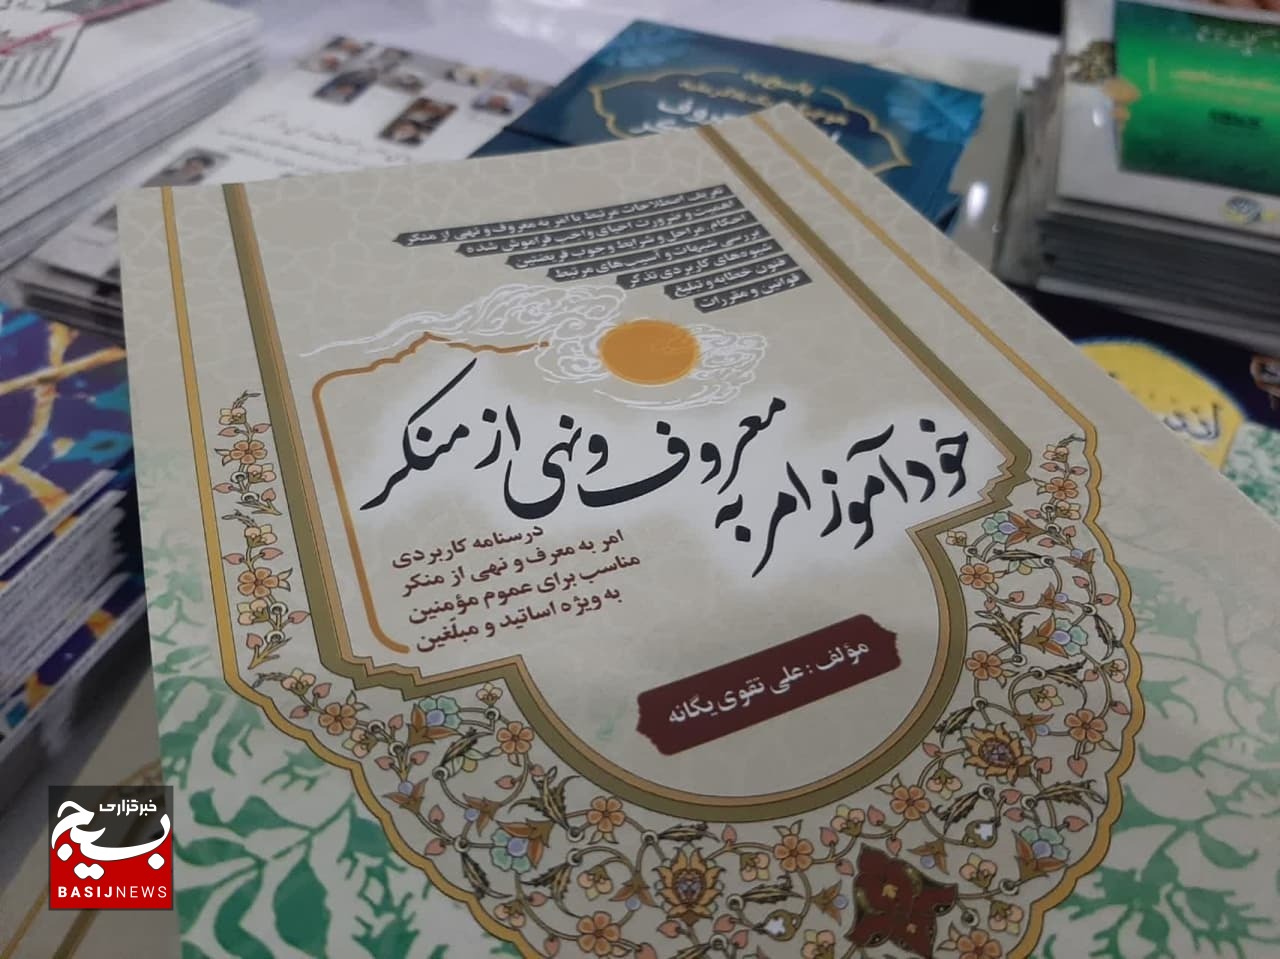 تعریف اصطلاحات مرتبط با امر به معروف و نهی از منکر
اهمیت و ضرورت احیای واجب فراموش شده
احکام، مراحل و شرایط وجوب فریضتین
بررسی شبهات و آسیب‌های مرتبط
شیوه‌های کاربردی تذکر
فنون خطابه و تبلیغ
قوانین و مقررات
خودآموز امر به معروف و نهی از منکر
درسنامه کاربردی
امر به معرف و نهی از منکر
مناسب برای عموم مؤمنین
به ویژه اساتید و مبلّغین
مؤلف: علی تقوی یگانه
پاسخ به
خبرگزاری
بسیج
BASIJNEWS